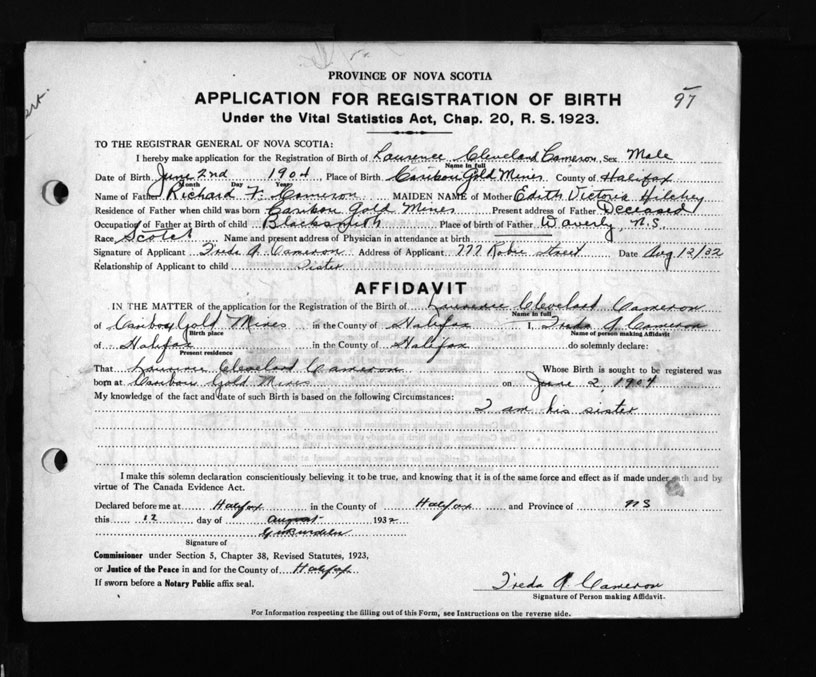 PROVINCE OF NOVA SCOTIA
97
APPLICATION FOR REGISTRATION OF BIRTH
Under the Vital Statistics Act, Chap. 20, R. S. 1923.
TO THE REGISTRAR GENERAL OF NOVA SCOTIA:
I hereby make application for the Registration of Birth of Laurence Cleveland Cameron Sex Male
Name in full
Date of Birth June 2nd 1904 Place of Birth Caribou Gold Mines County of Halifax
Month Day Year
Name of Father Richard F. Cameron MAIDEN NAME of Mother Edith Victoria
Residence of Father when child was born Caribou Gold Mines Present address of Father Deceased
Occupation of Father at Birth of child Blacksmith Place of birth of Father Waverly, N.S.
Race Scotch Name and present address of Physician in attendance at birth
Signature of Applicant Freda A. Cameron Address of Applicant 777 Robie Street Date Aug 12/32
Relationship of Applicant to child Sister
AFFIDAVIT
IN THE MATTER of the application for the Registration of the Birth of Laurence Cleveland Cameron
Name in full
of Caribou Gold Mines in the County of Halifax I, Freda A. Cameron
Birth place Name of person making Affidavit
of Halifax in the County of Halifax do solemnly declare:
Present residence
That Laurence Cleveland Cameron Whose Birth is sought to be registered was
born at Caribou Gold Mines on June 2, 1904
My knowledge of the fact and date of such Birth is based on the following Circumstances:
I am his sister
I make this solemn declaration conscientiously believing it to be true, and knowing that it is of the same force and effect as if made under oath and by
virtue of The Canada Evidence Act.
Declared before me at Halifax in the County of Halifax and Province of NS
this 12 day of August 1932
Signature of
Commissioner under Section 5, Chapter 38, Revised Statutes, 1923,
or Justice of the Peace in and for the County of Halifax
If sworn before a Notary Public affix seal.
Freda A. Cameron
Signature of Person making Affidavit.
For Information respecting the filling out of this Form, see Instructions on the reverse side.